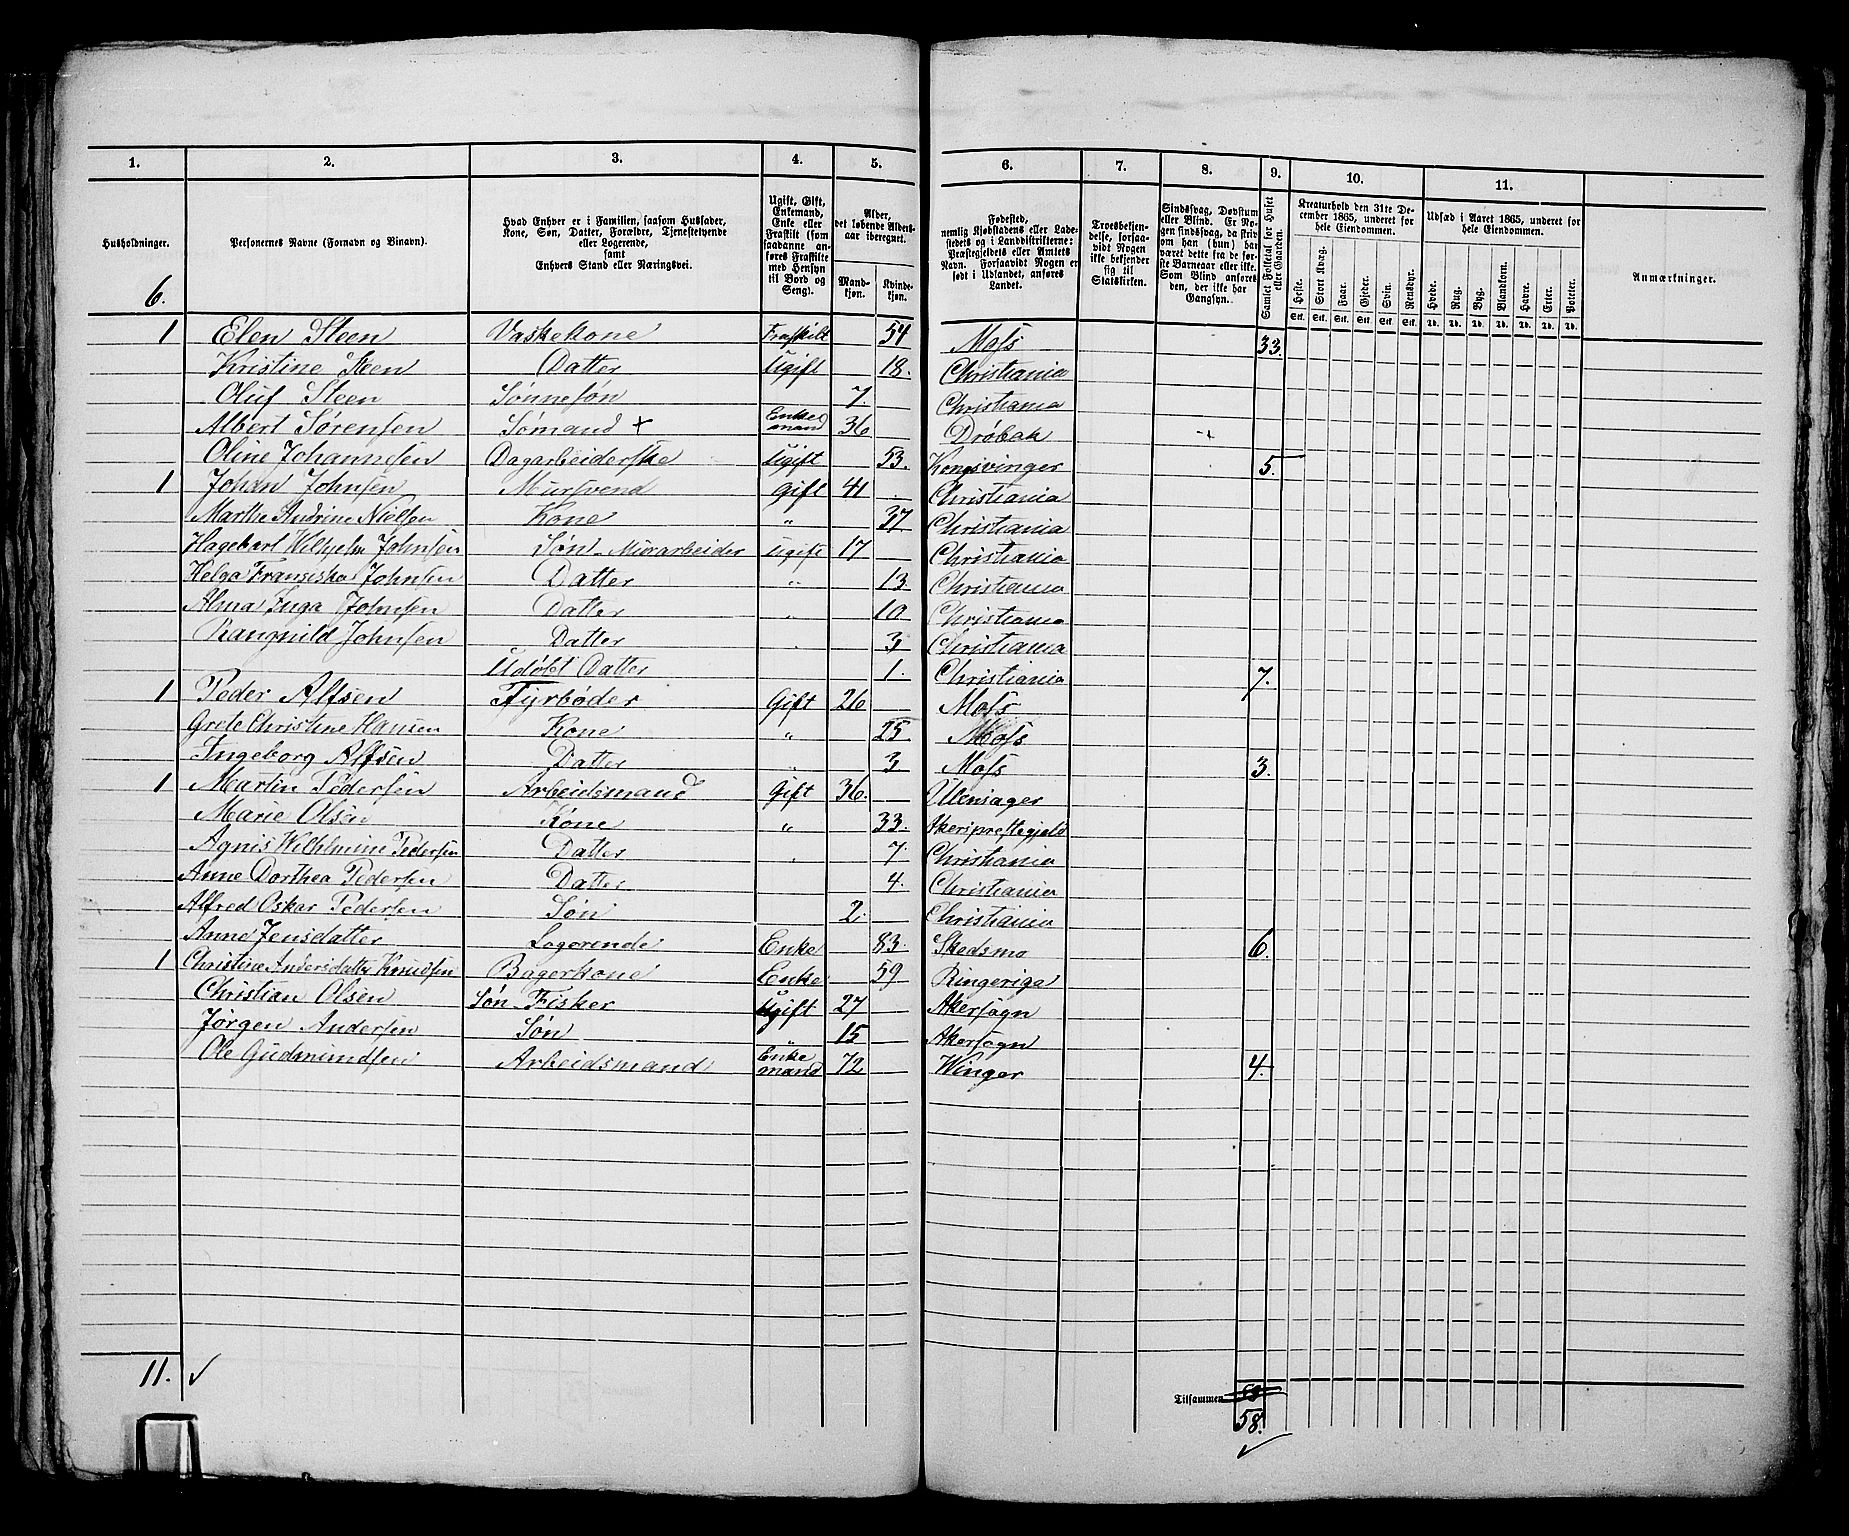 1. 2. 3. 4. 5. 6. 7. 8. 9. 10. 11.
Husholdninger.
Personernes Navne (Fornavn og Binavn).
Hvad Enhver er i Familien, saasom Husfader,
Kone, Søn, Datter, Forældre, Tjenestetyende
eller Logerende,
samt
Enhvers Stand eller Næringsvei.
Ugift, Gift,
Enkemand,
Enke eller
Fraskilt (som
saadanne an-
føres Fraskilte
med Hensyn
til Bord og
Seng).
Alder,
det løbende Alders-
aar iberegnet.
Mand-
kjøn.
Kvinde-
kjøn.
Fødested,
nemlig Kjøbstadens eller Lade-
stedets og i Landdistrikterne:
Præstegjeldets eller Amtets
Navn. Forsaavidt Nogen er
født i Udlandet, anføres
Landet.
Troesbekjen-
delse, forsaa-
vidt Nogen
ikke bekjender
sig til
Statskirken.
Sindssvag, Døvstum
eller Blind. Er No-
gen sindssvag, da skriv
om han (hun) har
været dette fra de før-
ste Barneaar eller ikke.
Som Blind anføres
den, der ikke har
Gangsyn.
Samlet Folketal for Huset
eller Gaarden.
Kreaturhold den 31te De-
cember 1865, underet for
hele Eiendommen.
Heste. Stort Kvæg. Faar. Gjeder. Svin. Rensdyr.
Stk. Stk. Stk. Stk. Stk. Stk.
Udsæd i Aaret 1865, underet for
hele Eiendommen.
Hvede. Rug. Byg. Blandkorn. Havre. Erter. Poteter.
Td. Td. Td. Td. Td. Td. Td.
Anmærkninger.
6.
1 Elen Steen Vaskekone Fraskilt 54 Moss 33.
Kristine Steen Datter Ugift 18. Christiania
Oluf Steen Sønnesøn 7. Christiania
Albert Sørensen Sømand + Enkemand 36 Drøbak +
Oline Johannesen Dagarbeiderske Ugift 53. Kongsvinger 5.
1 Johan Johnsen Mursvend Gift 41 Christiania
Marthe Andrine Nielsen Kone " 37 Christiania
Hagebart Wilhjelm Johnsen Søn - Murarbeider Ugift 17 Christiania
Helga Fransiska Johnsen Datter " 13 Christiania
Alma Inga Johnsen Datter " 10 Christiania
Rangnild Johnsen Datter " 3 Christiania
Udøbt Datter 1. Christiania 7.
1 Peder Alfsen Fyrbøder Gift 26 Moss
Grete Christine Hansen Kone " 25 Moss
Ingeborg Alfsen Datter " 3 Moss 3.
1 Martin Pedersen Arbeidsmand Gift 36. Ullensager
Marie Olsen Kone " 33. Akerspræstegjeld
Agnis Wilhelmine Pedersen Datter " 7 Christiania
Anne Dorthea Pedersen Datter 4. Christiania
Alfred Oskar Pedersen Søn 2. Christiania
Anne Jensdatter Logerende Enke 83. Skedsmo 6.
1 Christine Andersdatter Knudsen Bagerkone Enke 59 Ringeriga
Christian Olsen Søn - Fisker Ugift 27 Akersogn
Jørgen Andersen Søn " 15 Akersogn
Ole Gudmundsen Arbeidsmand Enkemand 72 Winger 4.
11. ✓
Tilsammen
58.
✓